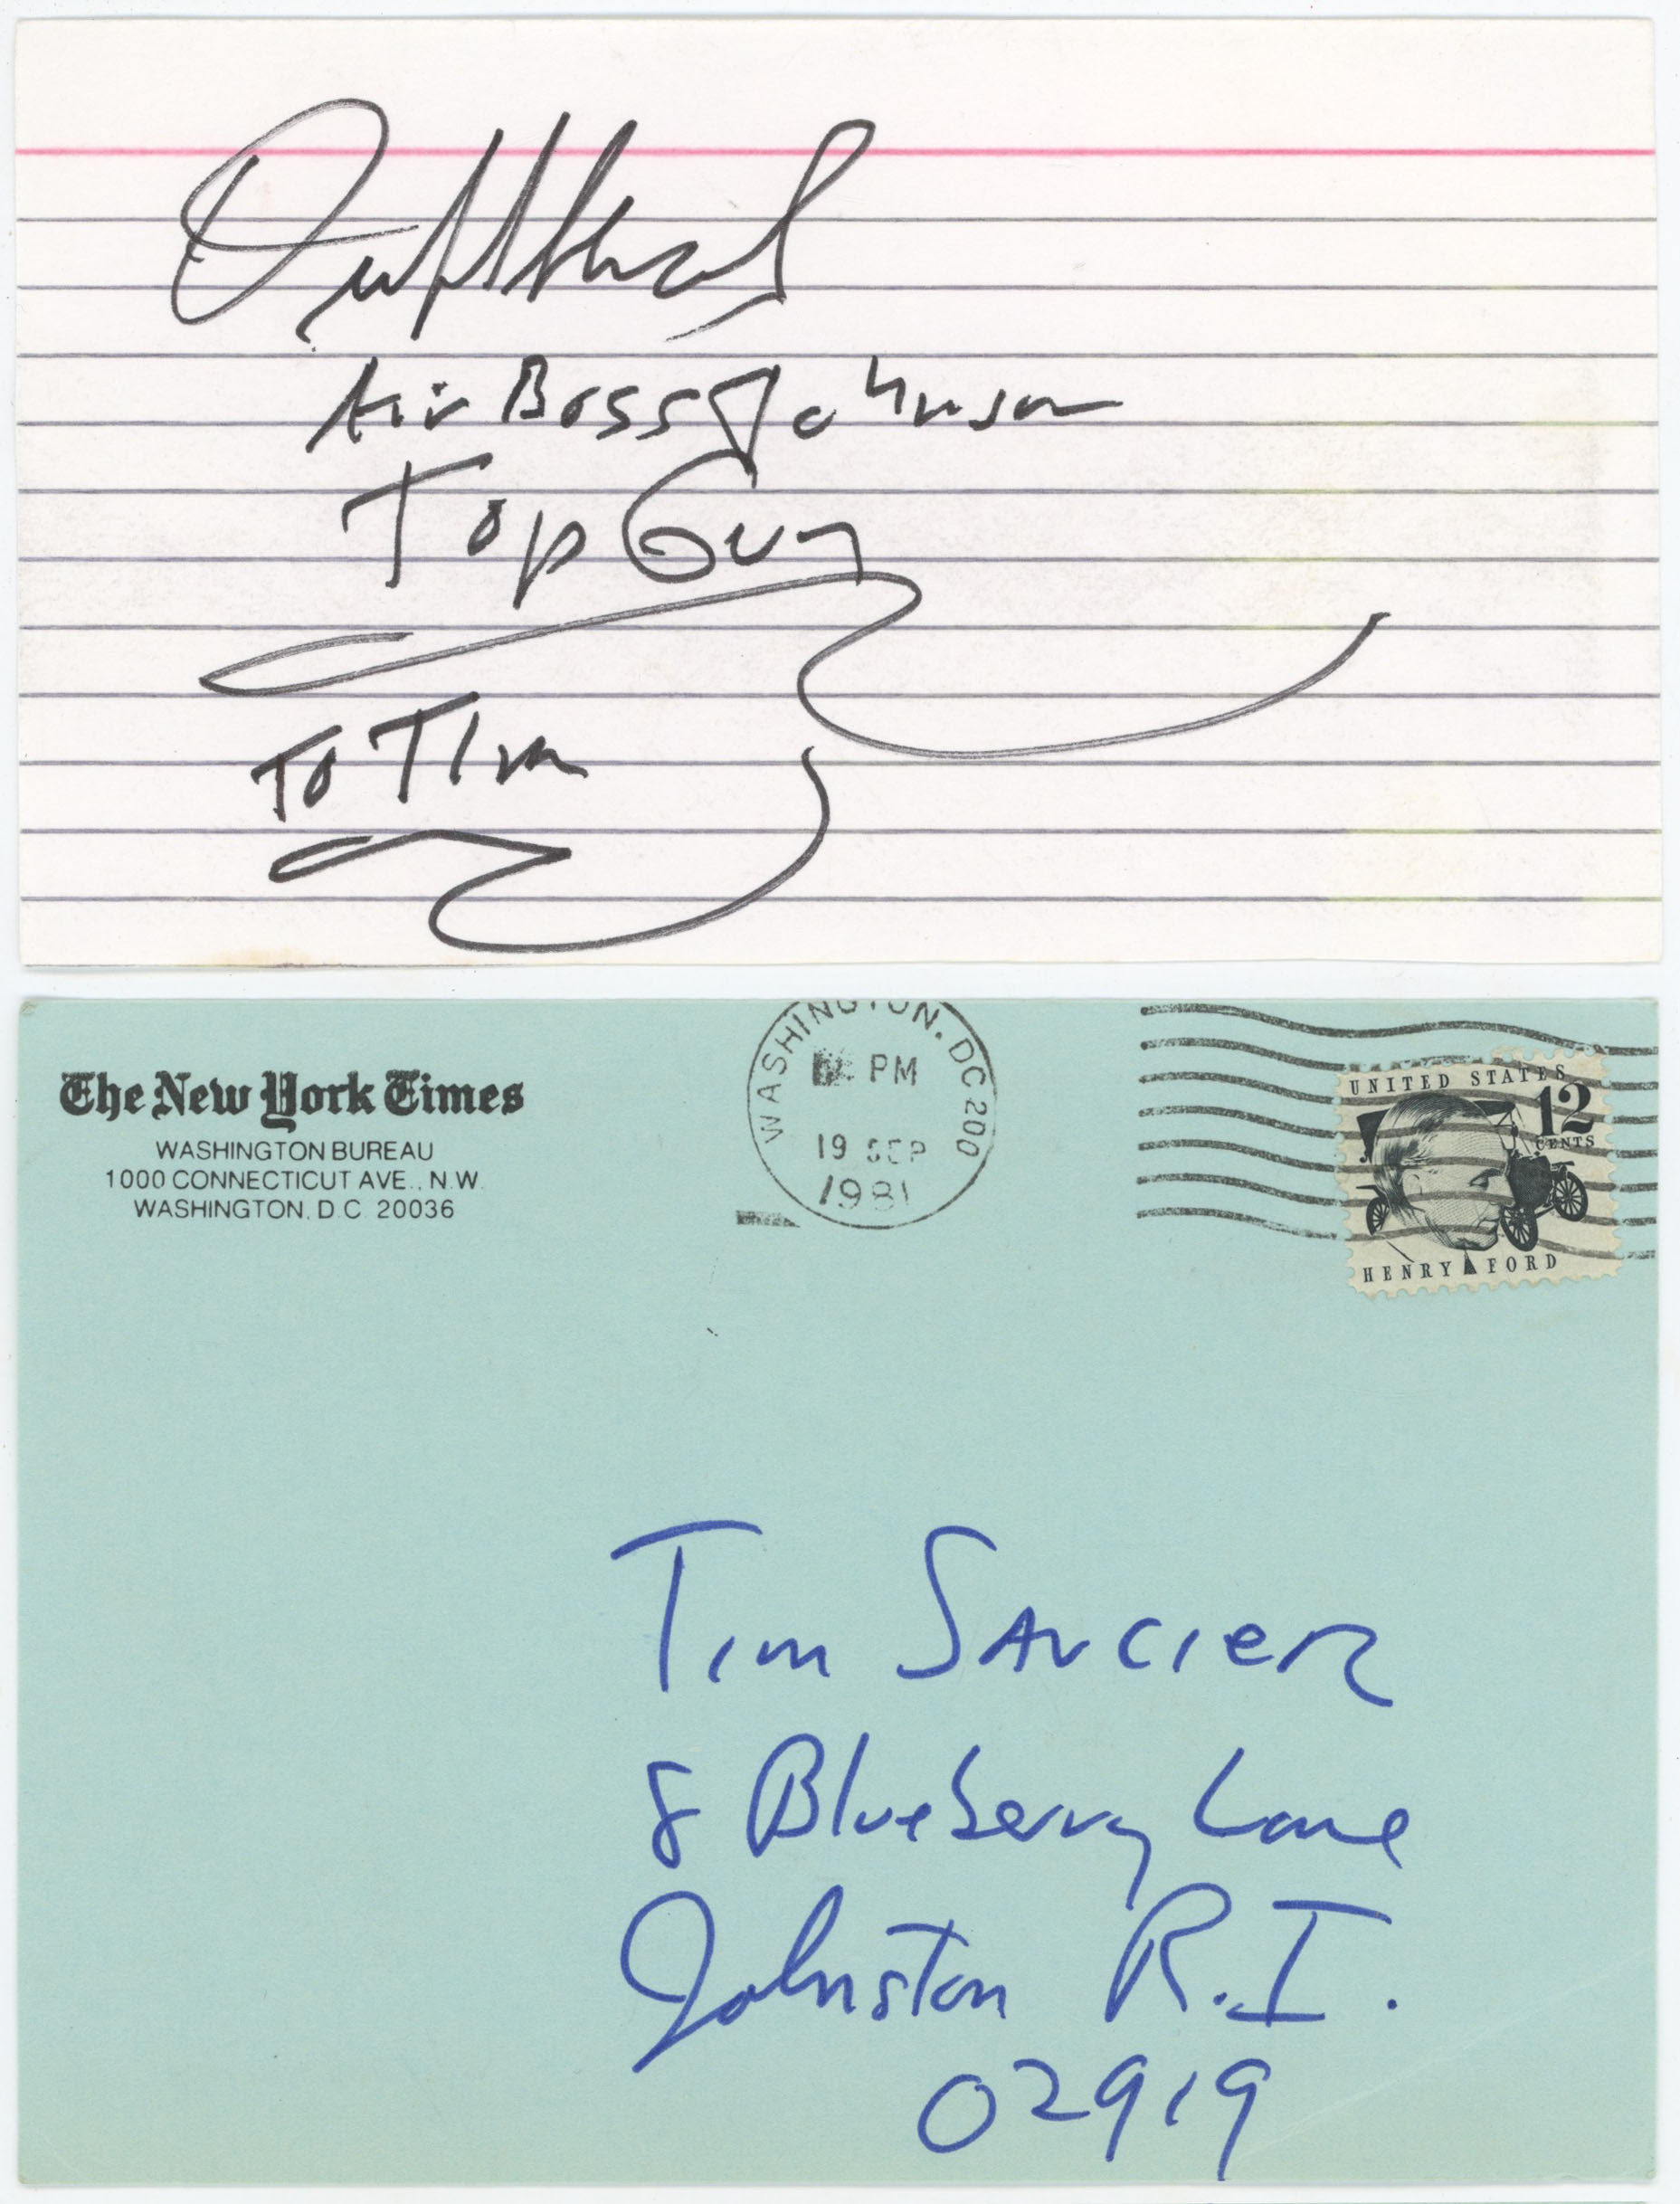 Air Boss Johnson
Top Gun
To Tim
The New York Times
WASHINGTON BUREAU
1000 CONNECTICUT AVE., N.W.
WASHINGTON, D.C. 20036
WASHINGTON, DC 200
PM
19 SEP
1981
UNITED STATES
12
CENTS
HENRY FORD
Tim Saucier
8 Blueberry Lane
Johnston R.I.
02919